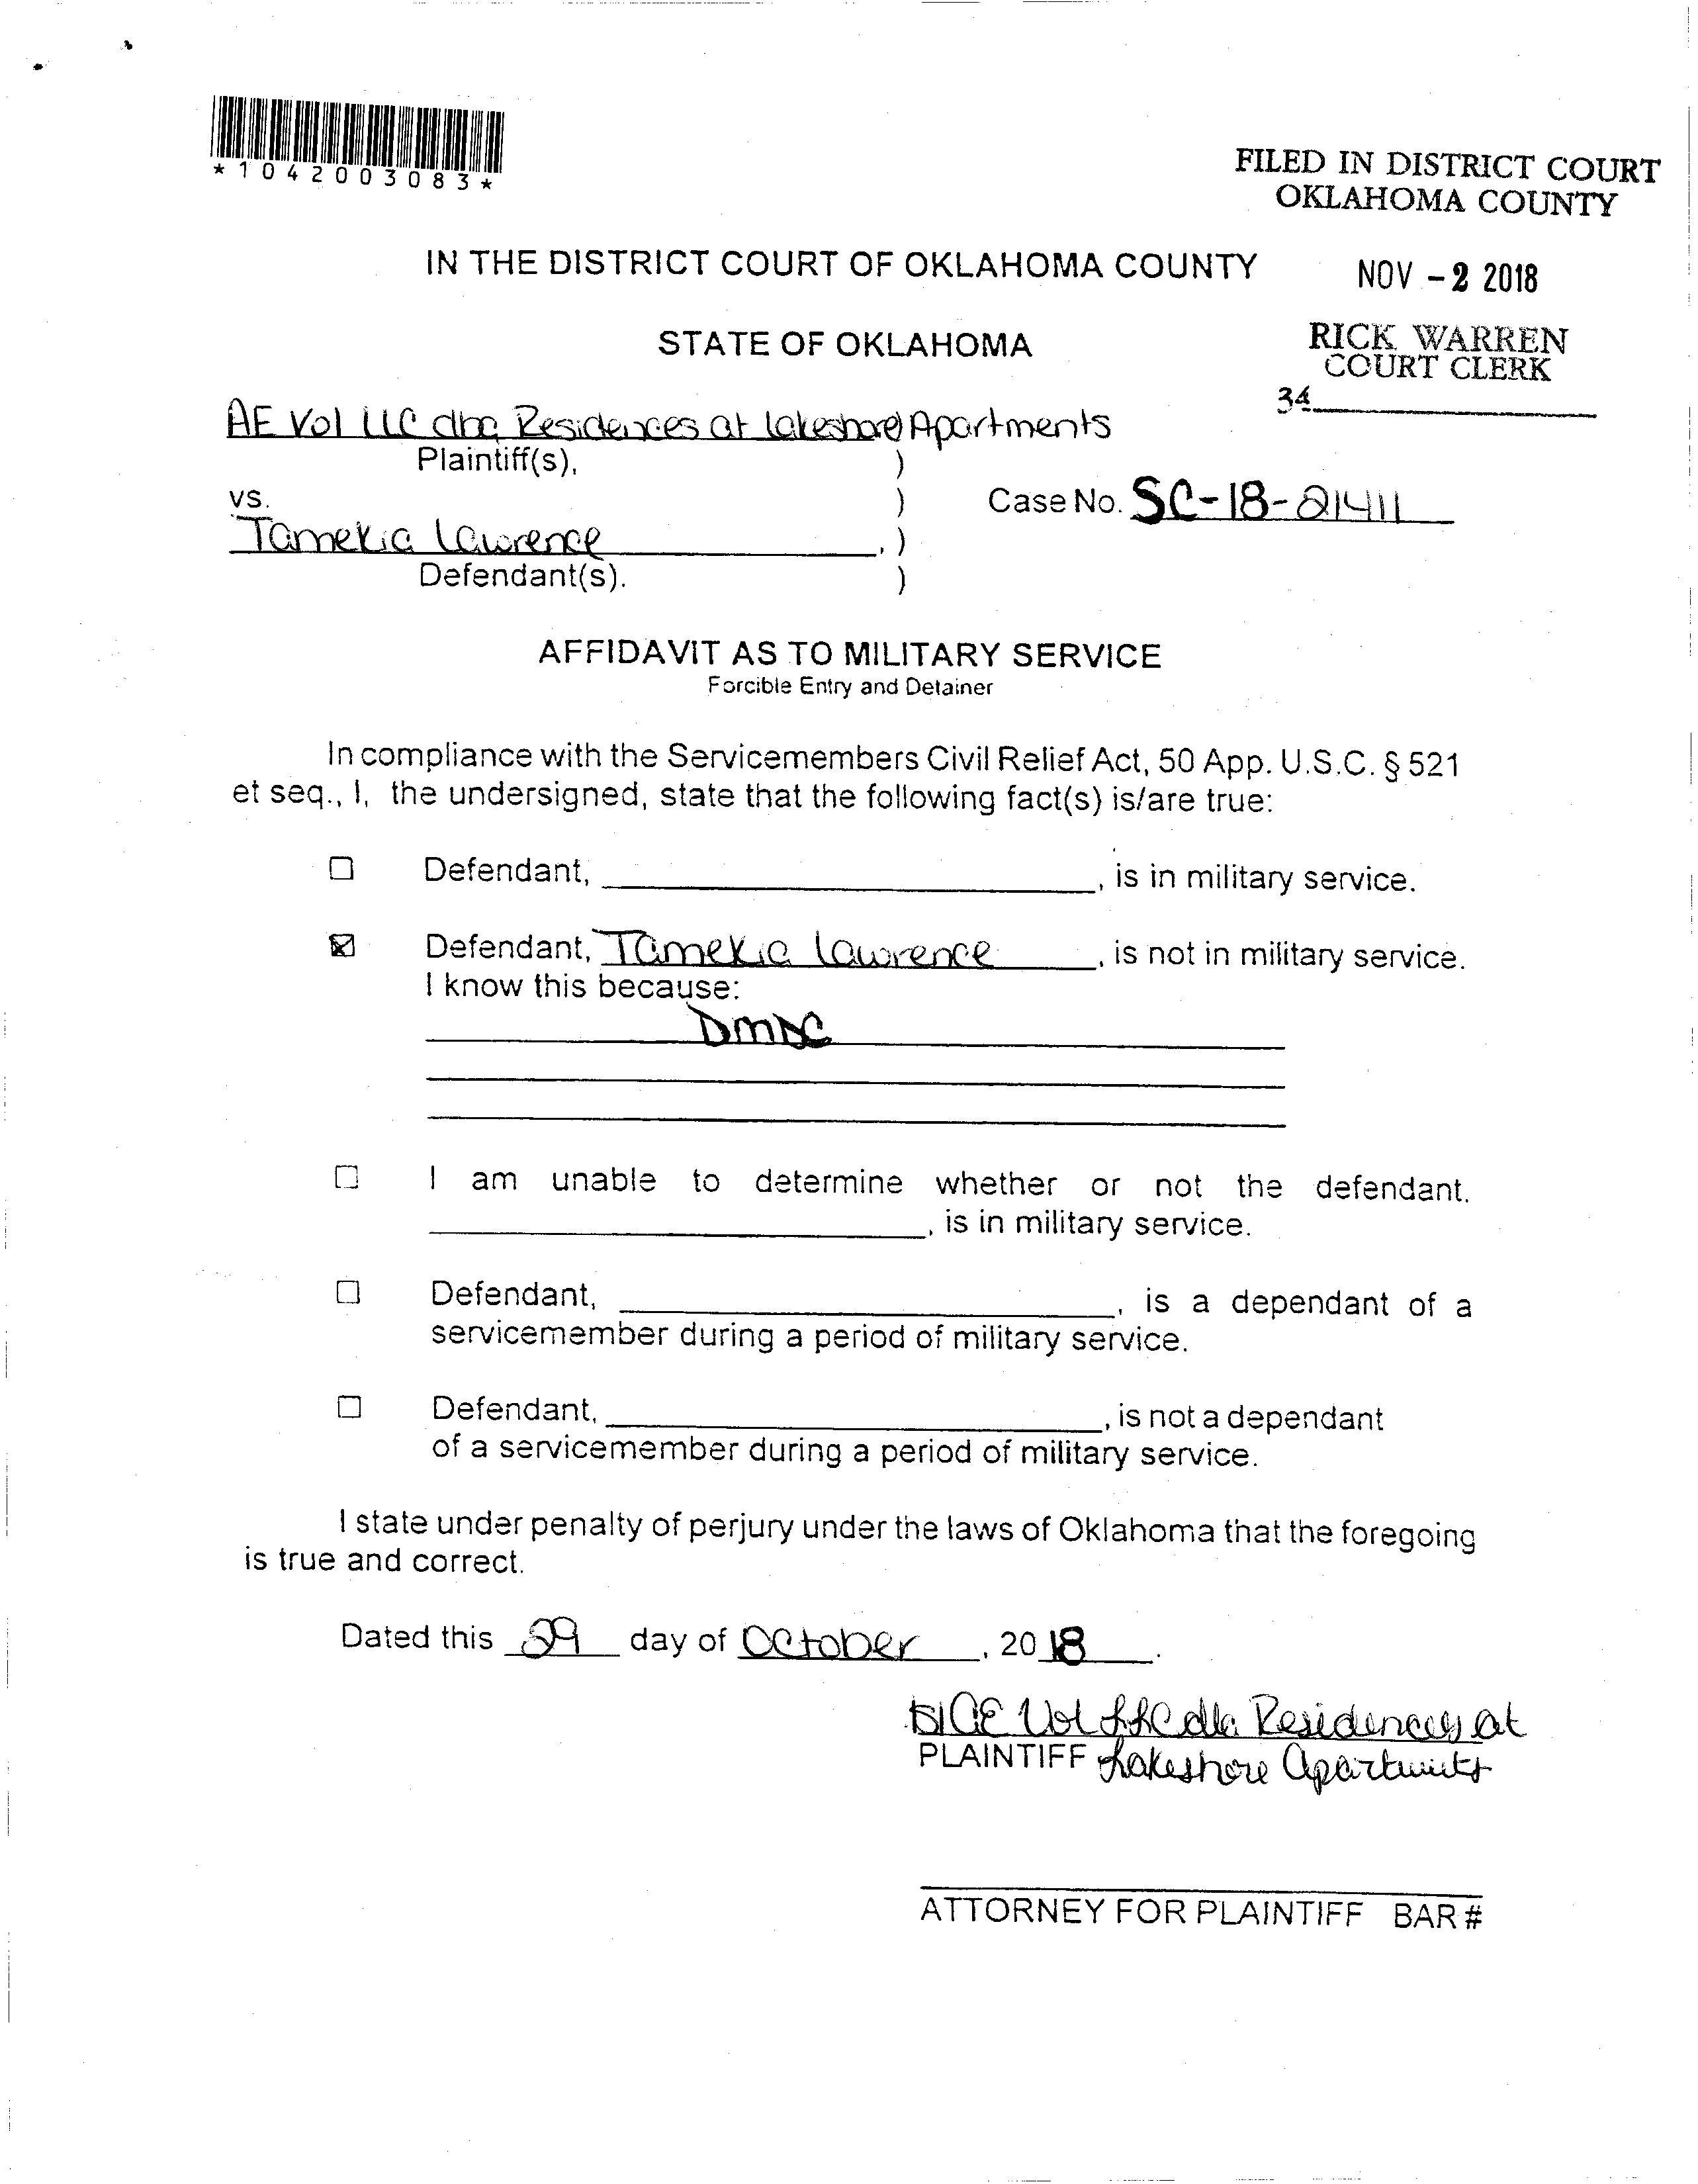 *1042003083*
FILED IN DISTRICT COURT
OKLAHOMA COUNTY
IN THE DISTRICT COURT OF OKLAHOMA COUNTY
NOV - 2 2018
STATE OF OKLAHOMA
RICK WARREN
COURT CLERK
34
AE Vol LLC dba Residences at Lakeshore Apartments
Plaintiff(s), )
vs. )
Case No. SC-18-21411
Tamekia Lawrence , )
Defendant(s). )
AFFIDAVIT AS TO MILITARY SERVICE
Forcible Entry and Detainer
In compliance with the Servicemembers Civil Relief Act, 50 App. U.S.C. § 521
et seq., I, the undersigned, state that the following fact(s) is/are true:
☐ Defendant, ____________, is in military service.
☒ Defendant, Tamekia Lawrence, is not in military service.
I know this because:
DMDC
☐ I am unable to determine whether or not the defendant.
____________, is in military service.
☐ Defendant, ____________, is a dependant of a
servicemember during a period of military service.
☐ Defendant, ____________, is not a dependant
of a servicemember during a period of military service.
I state under penalty of perjury under the laws of Oklahoma that the foregoing
is true and correct.
Dated this 29 day of October, 2018.
AE Vol LLC dba Residences at
PLAINTIFF Lakeshore Apartments
ATTORNEY FOR PLAINTIFF BAR #